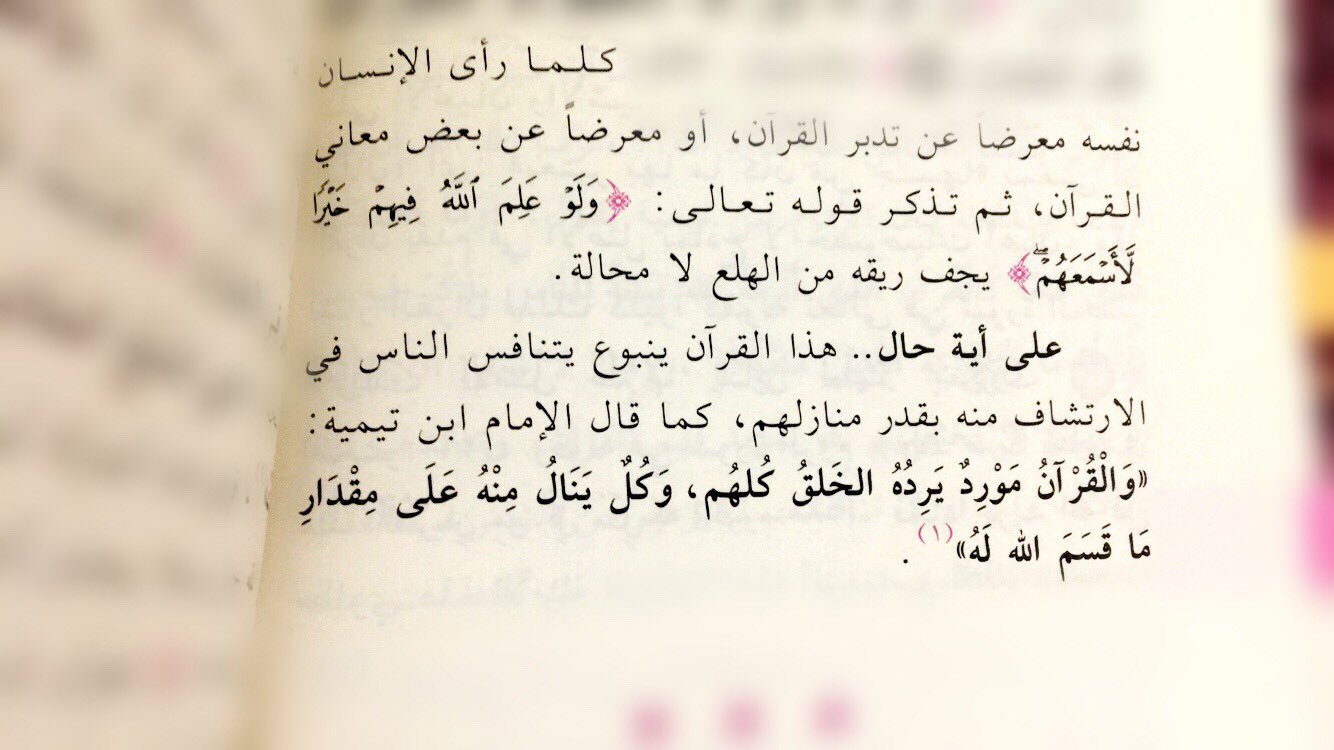 كلما رأى الإنسان
نفسه معرضاً عن تدبر القرآن، أو معرضاً عن بعض معاني
القرآن، ثم تذكر قوله تعالى: ﴿وَلَوْ عَلِمَ ٱللَّهُ فِيهِمْ خَيْرًا
لَّأَسْمَعَهُمْۖ﴾ يجف ريقه من الهلع لا محالة.
على أية حال.. هذا القرآن ينبوع يتنافس الناس في
الارتشاف منه بقدر منازلهم، كما قال الإمام ابن تيمية:
«وَالْقُرْآنُ مَوْرِدٌ يَرِدُهُ الخَلقُ كُلهُم، وَكُلٌ يَنَالُ مِنْهُ عَلَى مِقْدَارِ
مَا قَسَمَ الله لَهُ»(١).